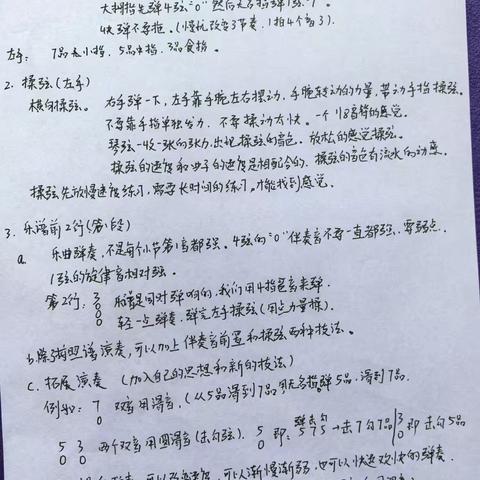 大拇指先弹4弦“0” 然后无名指弹1弦“7”。
4次弹不要拖。(慢找改变了节奏,1拍4个音3).
左手: 7品无小指. 5品中指. 3品食指。
2. 揉弦(左手)
横向揉弦。 右手弹一下,左手靠手腕左右摆动,手腕转动的力量,带动手指揉弦。
不要靠手指单独发力, 不要揉动太快。一个
琴弦一收一张的张力,出现揉弦的音色。放松的感觉揉弦。
揉弦的速度和曲子的速度是相配合的. 揉弦的音色有流水的动感。
揉弦先放慢速度练习,需要长时间的练习,才能找到感觉。
3. 乐谱前2行(第1段)
a 乐曲弹奏,不是每个小节第1音都强。4弦的“0”伴奏音不要一直都强. 要弱点.
1弦的旋律音相对强。
第2行: 3 和音是同时弹响的,我们用4指琶音来弹.
0 轻一点弹奏.弹完左手揉弦(用点力量揉).
0
b.除按照谱演奏,可以加上伴奏音前置和揉弦两种技法。
C. 拓展演奏 (加入自己的思想和新的技法)
例如: 7 双音用滑音,(从5品滑到7品)用无名指弹5品.滑到7品.
0
5 3 两个双音用圆滑音(击勾弦). 5 即: 弹击勾 575 →击7勾7品 3 即击勾5品
0 0 0 0
可以改变速度,可以渐慢渐弱.也可以快速欢快的弹奏.